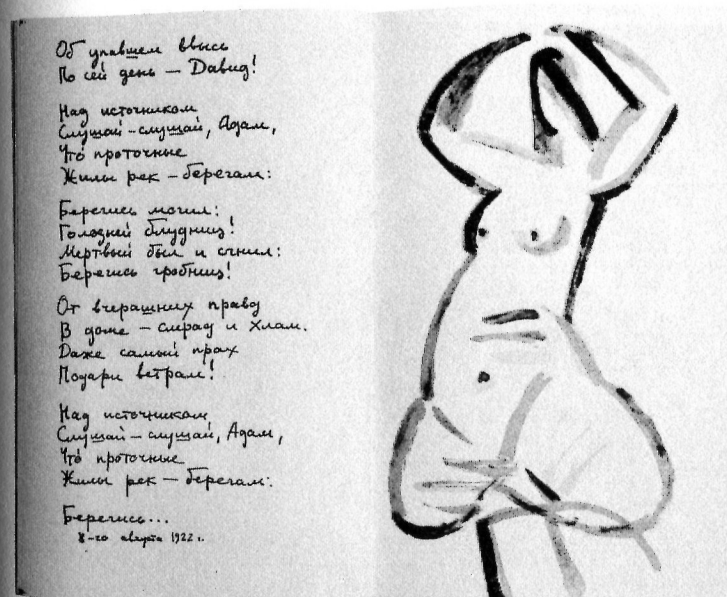 Об упавшем ввысь
По сей день — Давид!
Над источником
Слушай-слушай, Адам,
Что́ проточные
Жилы рек — берегам:
Берегись могил:
Голодней блудниц!
Мертвый был и сгнил:
Берегись гробниц!
От вчерашних правд
В доме — смрад и хлам.
Даже самый прах
Подари ветрам!
Над источником
Слушай-слушай, Адам,
Что́ проточные
Жилы рек — берегам:
Берегись...
8-го августа 1922 г.